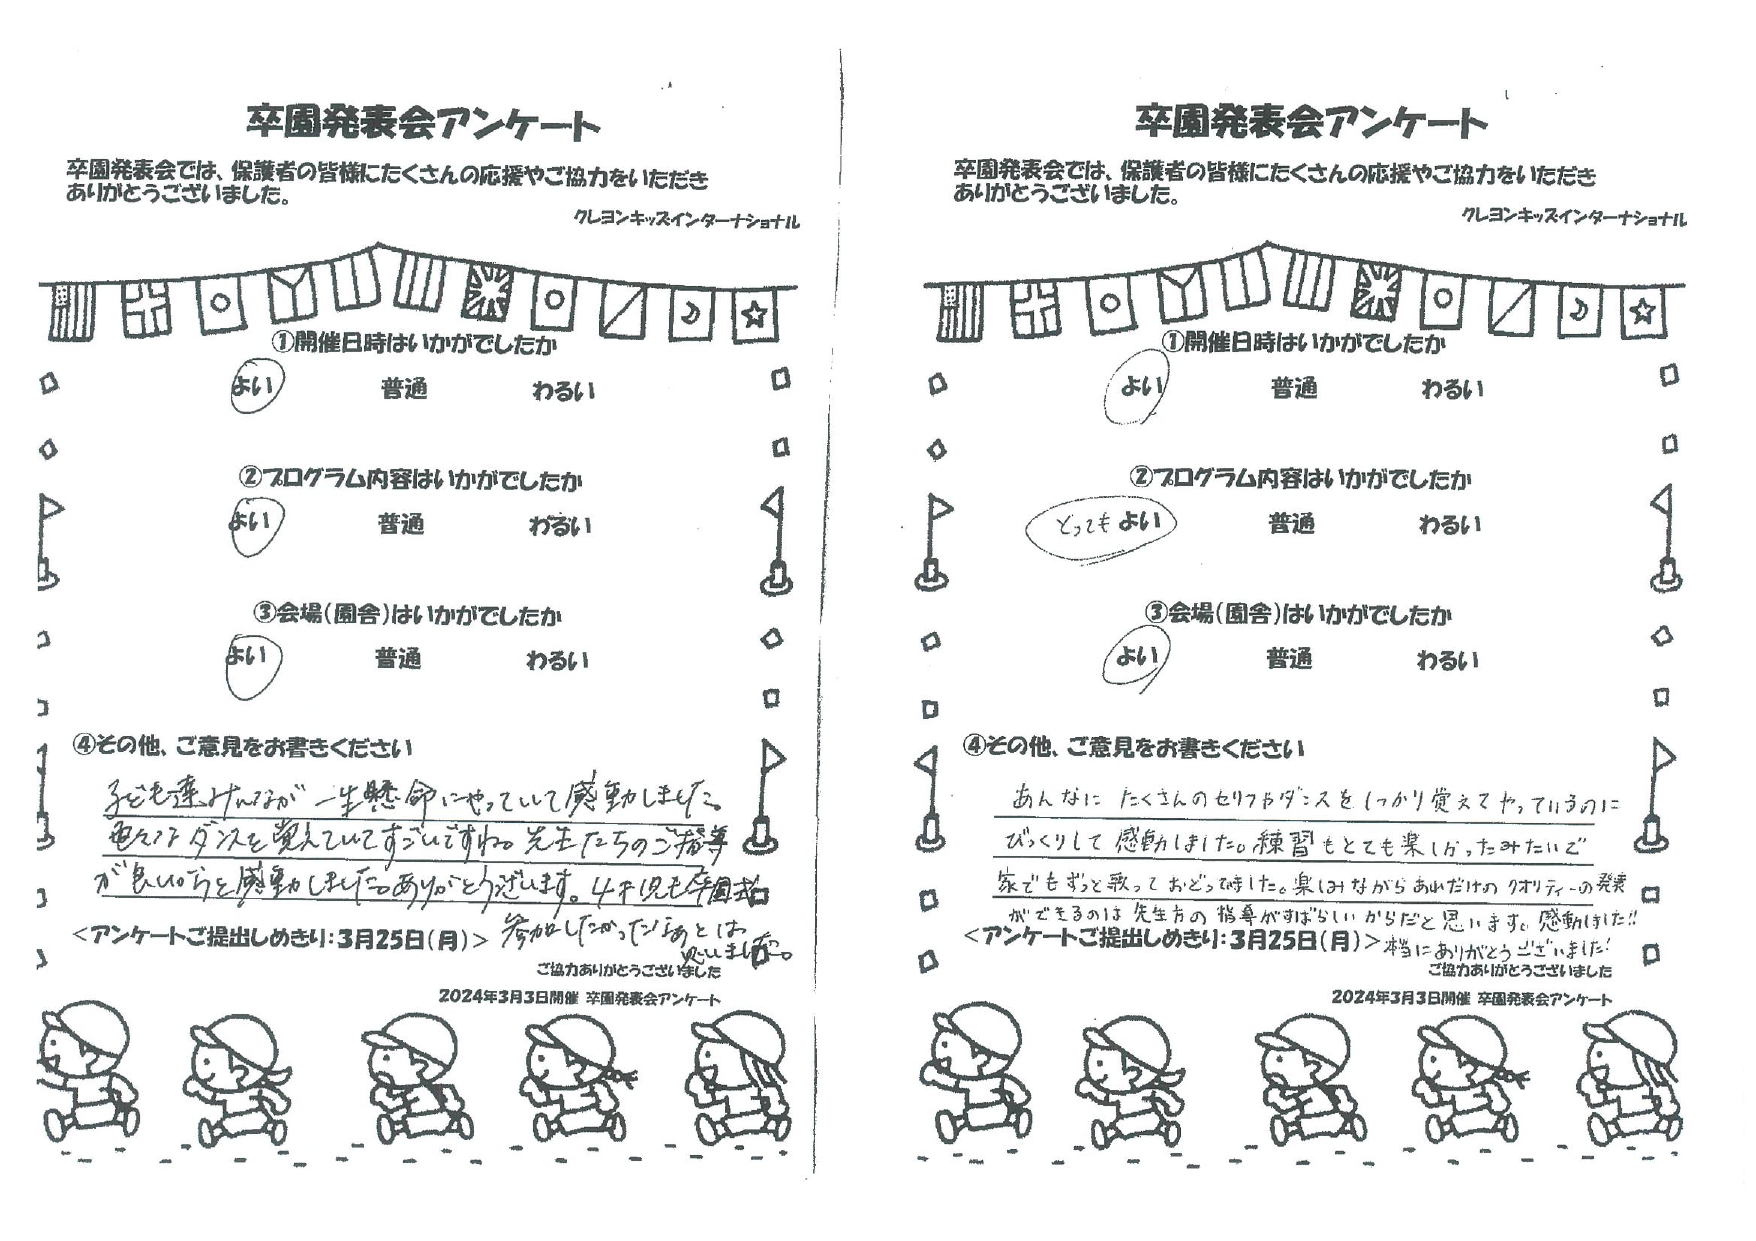 卒園発表会アンケート
卒園発表会では、保護者の皆様にたくさんの応援やご協力をいただき
ありがとうございました。
クレヨンキッズインターナショナル
①開催日時はいかがでしたか
よい 普通 わるい
②プログラム内容はいかがでしたか
よい 普通 わるい
③会場(園舎)はいかがでしたか
よい 普通 わるい
④その他、ご意見をお書きください
子ども達みんなが一生懸命にやっていて感動しました。
色々なダンスを覚えていてすごいですね。先生たちのご指導
が良いからと感動しました。ありがとうございます。4才児も卒園式
参加したかったなぁとは
思いました。
<アンケートご提出しめきり:3月25日(月)>
ご協力ありがとうございました
2024年3月3日開催 卒園発表会アンケート
卒園発表会アンケート
卒園発表会では、保護者の皆様にたくさんの応援やご協力をいただき
ありがとうございました。
クレヨンキッズインターナショナル
①開催日時はいかがでしたか
よい 普通 わるい
②プログラム内容はいかがでしたか
とっても よい 普通 わるい
③会場(園舎)はいかがでしたか
よい 普通 わるい
④その他、ご意見をお書きください
あんなに たくさんのセリフやダンスをしっかり覚えてやっているのに
びっくりして 感動しました。練習もとても楽しかったみたいで
家でもずっと歌っておどってました。楽しみながらあれだけのクオリティーの発表
ができるのは先生方の指導がすばらしいからだと思います。感動しました!!
本当にありがとうございました!
<アンケートご提出しめきり:3月25日(月)>
ご協力ありがとうございました
2024年3月3日開催 卒園発表会アンケート